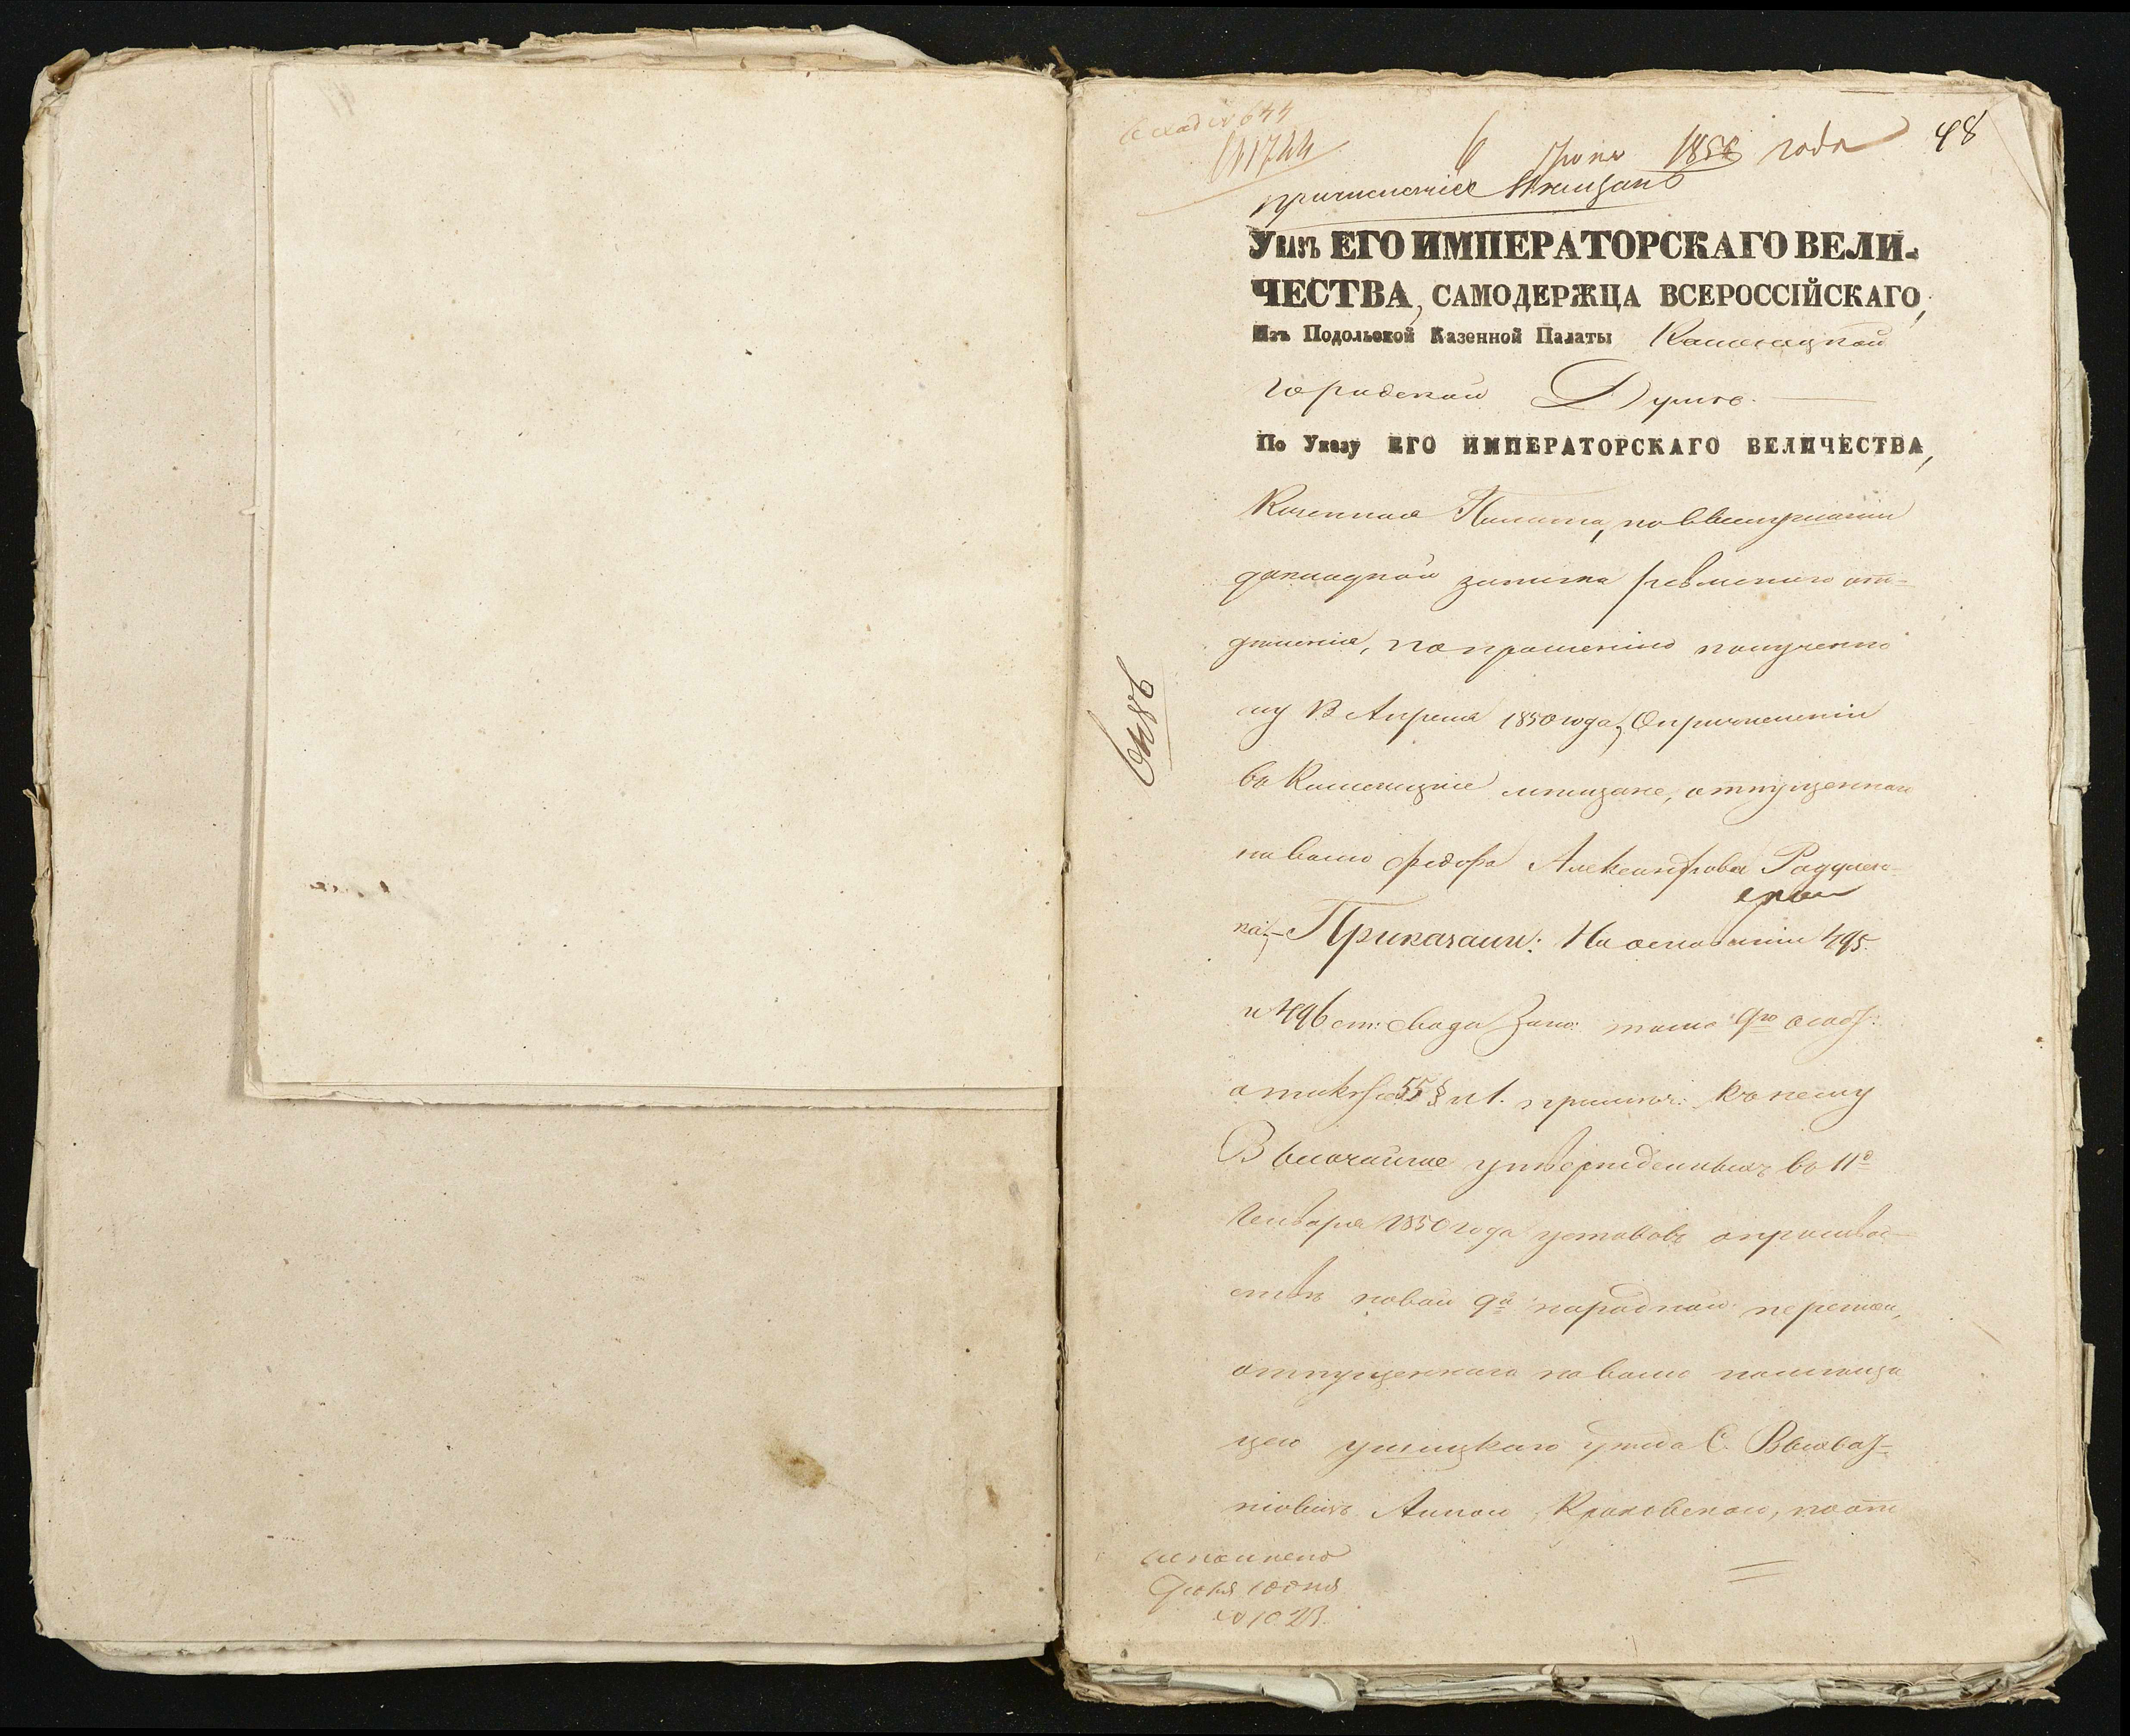 48
6 Июня 1850 года
причисление Мещанъ
Указъ ЕГО ИМПЕРАТОРСКАГО ВЕЛИ-
ЧЕСТВА, САМОДЕРЖЦА ВСЕРОССІЙСКАГО,
Изъ Подольской Казенной Палаты Каменецкой
городской Думѣ.
По Указу ЕГО ИМПЕРАТОРСКАГО ВЕЛИЧЕСТВА,
Казенная Палата, по выслушаніи
докладной записки ревизскаго от-
дѣленія, по прошенію полученно
му В Апреля 1850 года, О причисленіи
въ Каменецкіе мѣщане, отпущеннаго
на волю Федора Александрова
ка, Приказали: На основаніи 495
и 496 ст: Свода Зако: тома 9го
55 § и 1. примѣч: къ нему
Высочайше утвержденныхъ въ 11й
Генваря 1850 года уставовъ о производ-
ствѣ новой 9й народной переписи,
отпущеннаго на волю помѣщи
цею Ушицкаго уѣзда С.
Анною Краковскою, по от
=
исполнено
Июня 10 дня
№ 1023